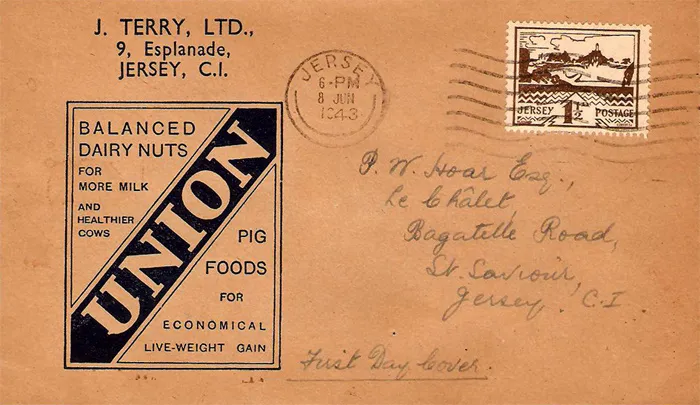 J. TERRY, LTD.,
9, Esplanade,
JERSEY, C.I.
JERSEY
6-PM
8 JUN
1943
JERSEY 1½D POSTAGE
BALANCED
DAIRY NUTS
FOR
MORE MILK
AND
HEALTHIER
COWS
UNION
PIG
FOODS
FOR
ECONOMICAL
LIVE-WEIGHT GAIN
P. W. Hoar Esq.,
Le Châlet,
Bagatelle Road,
St. Saviour,
Jersey, C.I
First Day Cover.